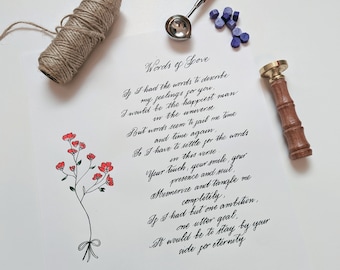 Words of Love
If I had the words to describe
my feelings for you,
I would be the happiest man
in the universe.
But words seem to fail me time
and time again,
So I have to settle for the words
in this verse.
Your touch, your smile, your
presence and soul,
Mesmerise and tangle me
completely,
If I had but one ambition,
one utter goal,
It would be to stay by your
side for eternity.